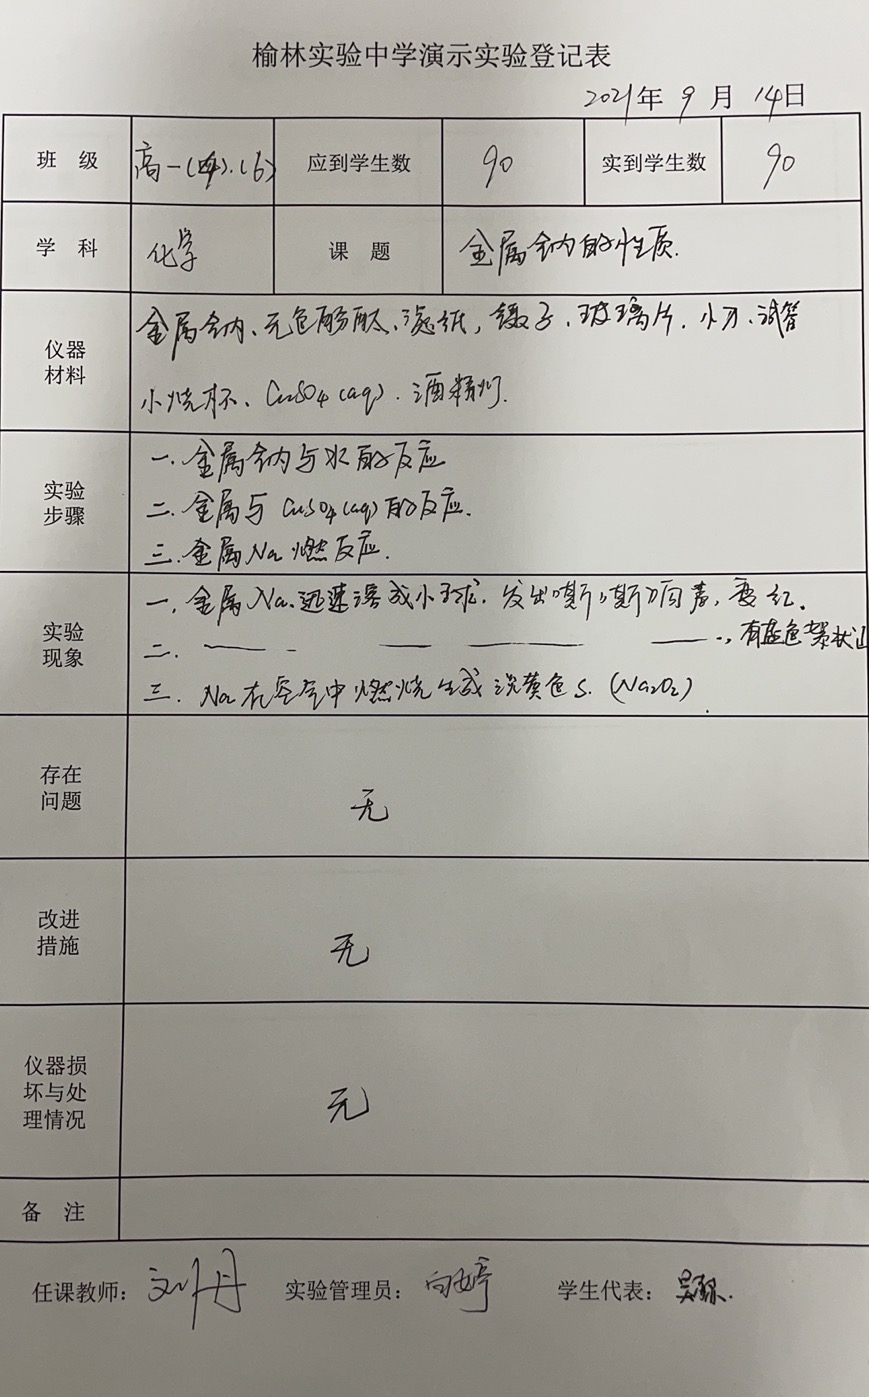 榆林实验中学演示实验登记表
2021年 9月 14日
班 级 高一(4).(6) 应到学生数 90 实到学生数 90
学 科 化学 课 题 金属钠的性质.
仪器材料 金属钠、无色酚酞、滤纸,镊子、玻璃片.小刀、试管
小烧杯、CuSO4(aq).酒精灯.
实验步骤 一.金属钠与水的反应
二.金属与CuSO4(aq)的反应.
三.金属Na燃反应.
实验现象 一,金属Na.迅速溶成小球.发出嘶嘶响声,变红.
二. —— — —— —— ,有蓝色絮状
三.Na在空气中燃烧生成淡黄色S.(Na2O2)
存在问题 无
改进措施 无
仪器损坏与处理情况 无
备 注
任课教师:刘丹 实验管理员:向婷 学生代表: